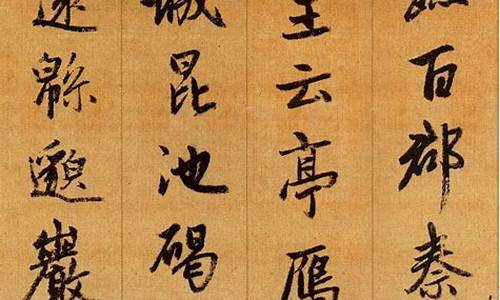 百郡秦
主云亭鴈
城昆池碣
遠緜邈巖